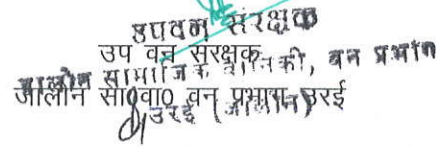 उपवन संरक्षक
उप वन संरक्षक
जालौन सामाजिक वानिकी, वन प्रभाग
जालौन सा0वा0 वन प्रभाग, उरई
उरई (जालौन)